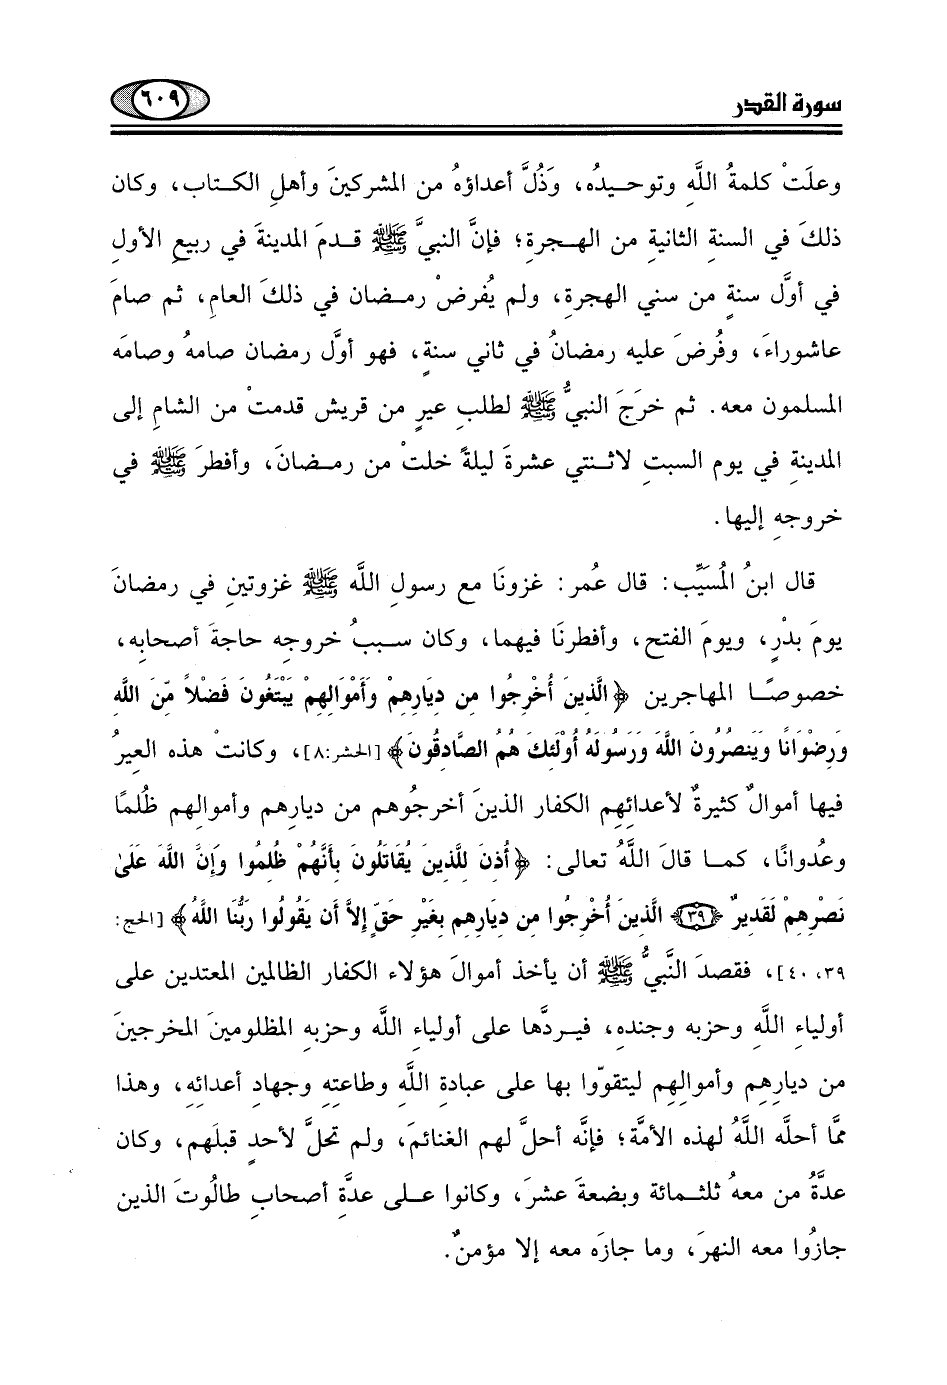 سورة القدر
٦٠٩
وعلَتْ كلمةُ اللَّهِ وتوحيدُه، وَذُلَّ أعداؤهُ من المشركينَ وأهلِ الكتاب، وكان
ذلكَ في السنةِ الثانيةِ من الهجرةِ؛ فإنَّ النبيَّ ﷺ قدمَ المدينةَ في ربيعِ الأولِ
في أوَّل سنةٍ من سني الهجرةِ، ولم يُفرضْ رمضان في ذلكَ العامِ، ثم صامَ
عاشوراءَ، وفُرضَ عليه رمضانُ في ثاني سنةٍ، فهو أوَّل رمضان صامهُ وصامَه
المسلمون معه. ثم خرَجَ النبيُّ ﷺ لطلبِ عيرٍ من قريش قدمتْ من الشامِ إلى
المدينةِ في يوم السبتِ لاثنتي عشرةَ ليلةً خلتْ من رمضانَ، وأفطرَ ﷺ في
خروجهِ إليها.
قال ابنُ المُسيَّبِ: قال عُمر: غزونَا مع رسولِ اللَّه ﷺ غزوتينِ في رمضانَ
يومَ بدْرٍ، ويومَ الفتحِ، وأفطرنَا فيهما، وكان سببُ خروجه حاجةَ أصحابِه،
خصوصًا المهاجرين ﴿الَّذِينَ أُخْرِجُوا مِن دِيَارِهِمْ وَأَمْوَالِهِمْ يَبْتَغُونَ فَضْلاً مِّنَ اللَّهِ
وَرِضْوَانًا وَيَنصُرُونَ اللَّهَ وَرَسُولَهُ أُوْلَئِكَ هُمُ الصَّادِقُونَ﴾ [الحشر:٨]، وكانتْ هذه العيرُ
فيها أموالٌ كثيرةٌ لأعدائِهِم الكفار الذينَ أخرجُوهم من ديارِهم وأموالِهم ظُلمًا
وعُدوانًا، كما قالَ اللَّهُ تعالى: ﴿أُذِنَ لِلَّذِينَ يُقَاتَلُونَ بِأَنَّهُمْ ظُلِمُوا وَإِنَّ اللَّهَ عَلَىٰ
نَصْرِهِمْ لَقَدِيرٌ ﴿٣٩﴾ الَّذِينَ أُخْرِجُوا مِن دِيَارِهِم بِغَيْرِ حَقٍّ إِلاَّ أَن يَقُولُوا رَبُّنَا اللَّهُ﴾ [الحج:
٣٩، ٤٠]، فقصدَ النَّبيُّ ﷺ أن يأخذ أموالَ هؤلاء الكفار الظالمين المعتدين على
أولياءِ اللَّهِ وحزبِه وجندِه، فيردَّها على أولياءِ اللَّه وحزبِه المظلومينَ المخرجينَ
من ديارِهم وأموالِهم ليتقوَّوا بها على عبادةِ اللَّهِ وطاعتِهِ وجهادِ أعدائِهِ، وهذا
ممَّا أحلَّه اللَّهُ لهذه الأمَّة؛ فإنَّه أحلَّ لهم الغنائمَ، ولم تحلَّ لأحدٍ قبلَهم، وكان
عدَّةُ من معهُ ثلثمائة وبضعةَ عشرَ، وكانوا على عدَّةِ أصحابِ طالُوتَ الذين
جازُوا معه النهرَ، وما جازَه معه إلا مؤمنٌ.